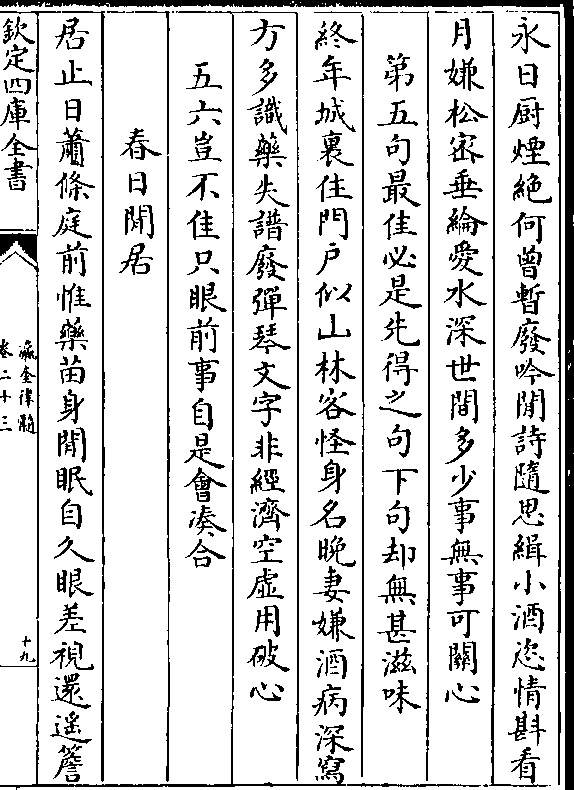 永日厨煙絶何曾暫廢吟閒詩隨思緝小酒恣情斟看
月嫌松宻垂綸愛水深世間多少事無事可關心
第五句最佳必是先得之句下句却無甚滋味
終年城裏住門戸似山林客怪身名晚妻嫌酒病深寫
方多識藥失譜廢彈琴文字非經濟空虛用破心
五六豈不佳只眼前事自是會凑合
春日閒居
居止日蕭條庭前惟藥苗身閒眠自久眼差視還遥簷
欽定四庫全書
瀛奎律髓
卷二十三
十九